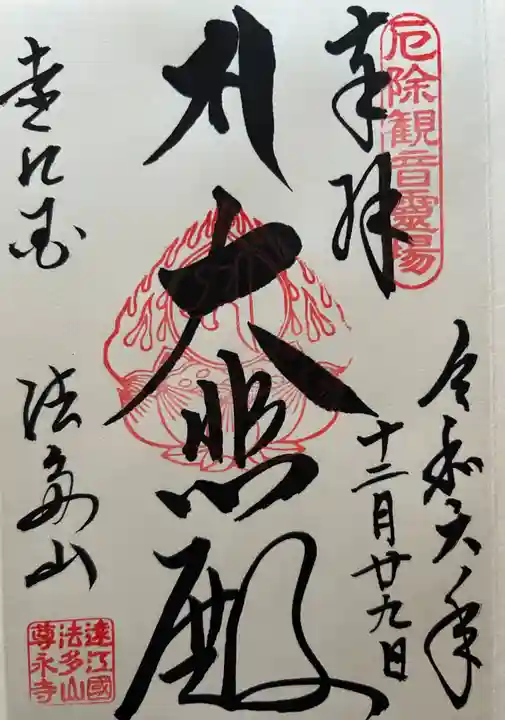 厄除観音靈場
奉拝
令和六年
十二月廿九日
大悲殿
遠江国
法多山
遠江國
法多山
尊永寺